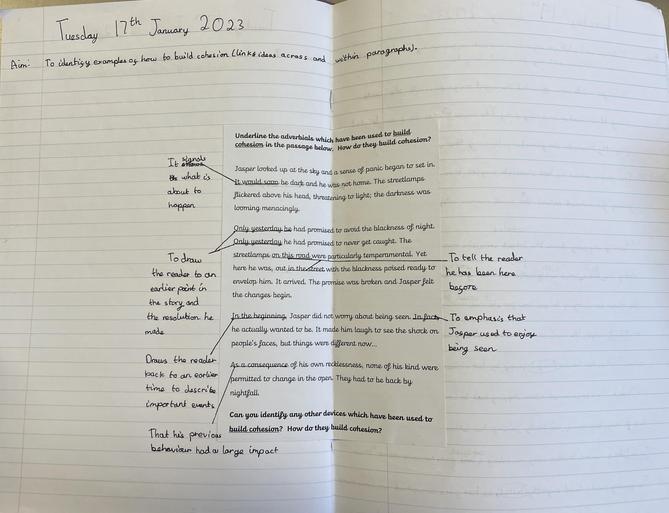 Tuesday 17th January 2023
Aim: To identify examples of how to build cohesion (links ideas across and within paragraphs).
Underline the adverbials which have been used to build
cohesion in the passage below. How do they build cohesion?
Jasper looked up at the sky and a sense of panic began to set in.
It would soon be dark and he was not home. The streetlamps
flickered above his head, threatening to light; the darkness was
looming menacingly.
Only yesterday he had promised to avoid the blackness of night.
Only yesterday he had promised to never get caught. The
streetlamps on this road were particularly temperamental. Yet
here he was, out in the street with the blackness poised ready to
envelop him. It arrived. The promise was broken and Jasper felt
the changes begin.
In the beginning, Jasper did not worry about being seen. In fact,
he actually wanted to be. It made him laugh to see the shock on
people's faces, but things were different now...
As a consequence of his own recklessness, none of his kind were
permitted to change in the open. They had to be back by
nightfall.
Can you identify any other devices which have been used to
build cohesion? How do they build cohesion?
It signals
what is
about to
happen
To draw
the reader to an
earlier point in
the story and
the resolution he
made
Draws the reader
back to an earlier
time to describe
important events
That his previous
behaviour had a large impact
To tell the reader
he has been here
before
To emphasis that
Jasper used to enjoy
being seen